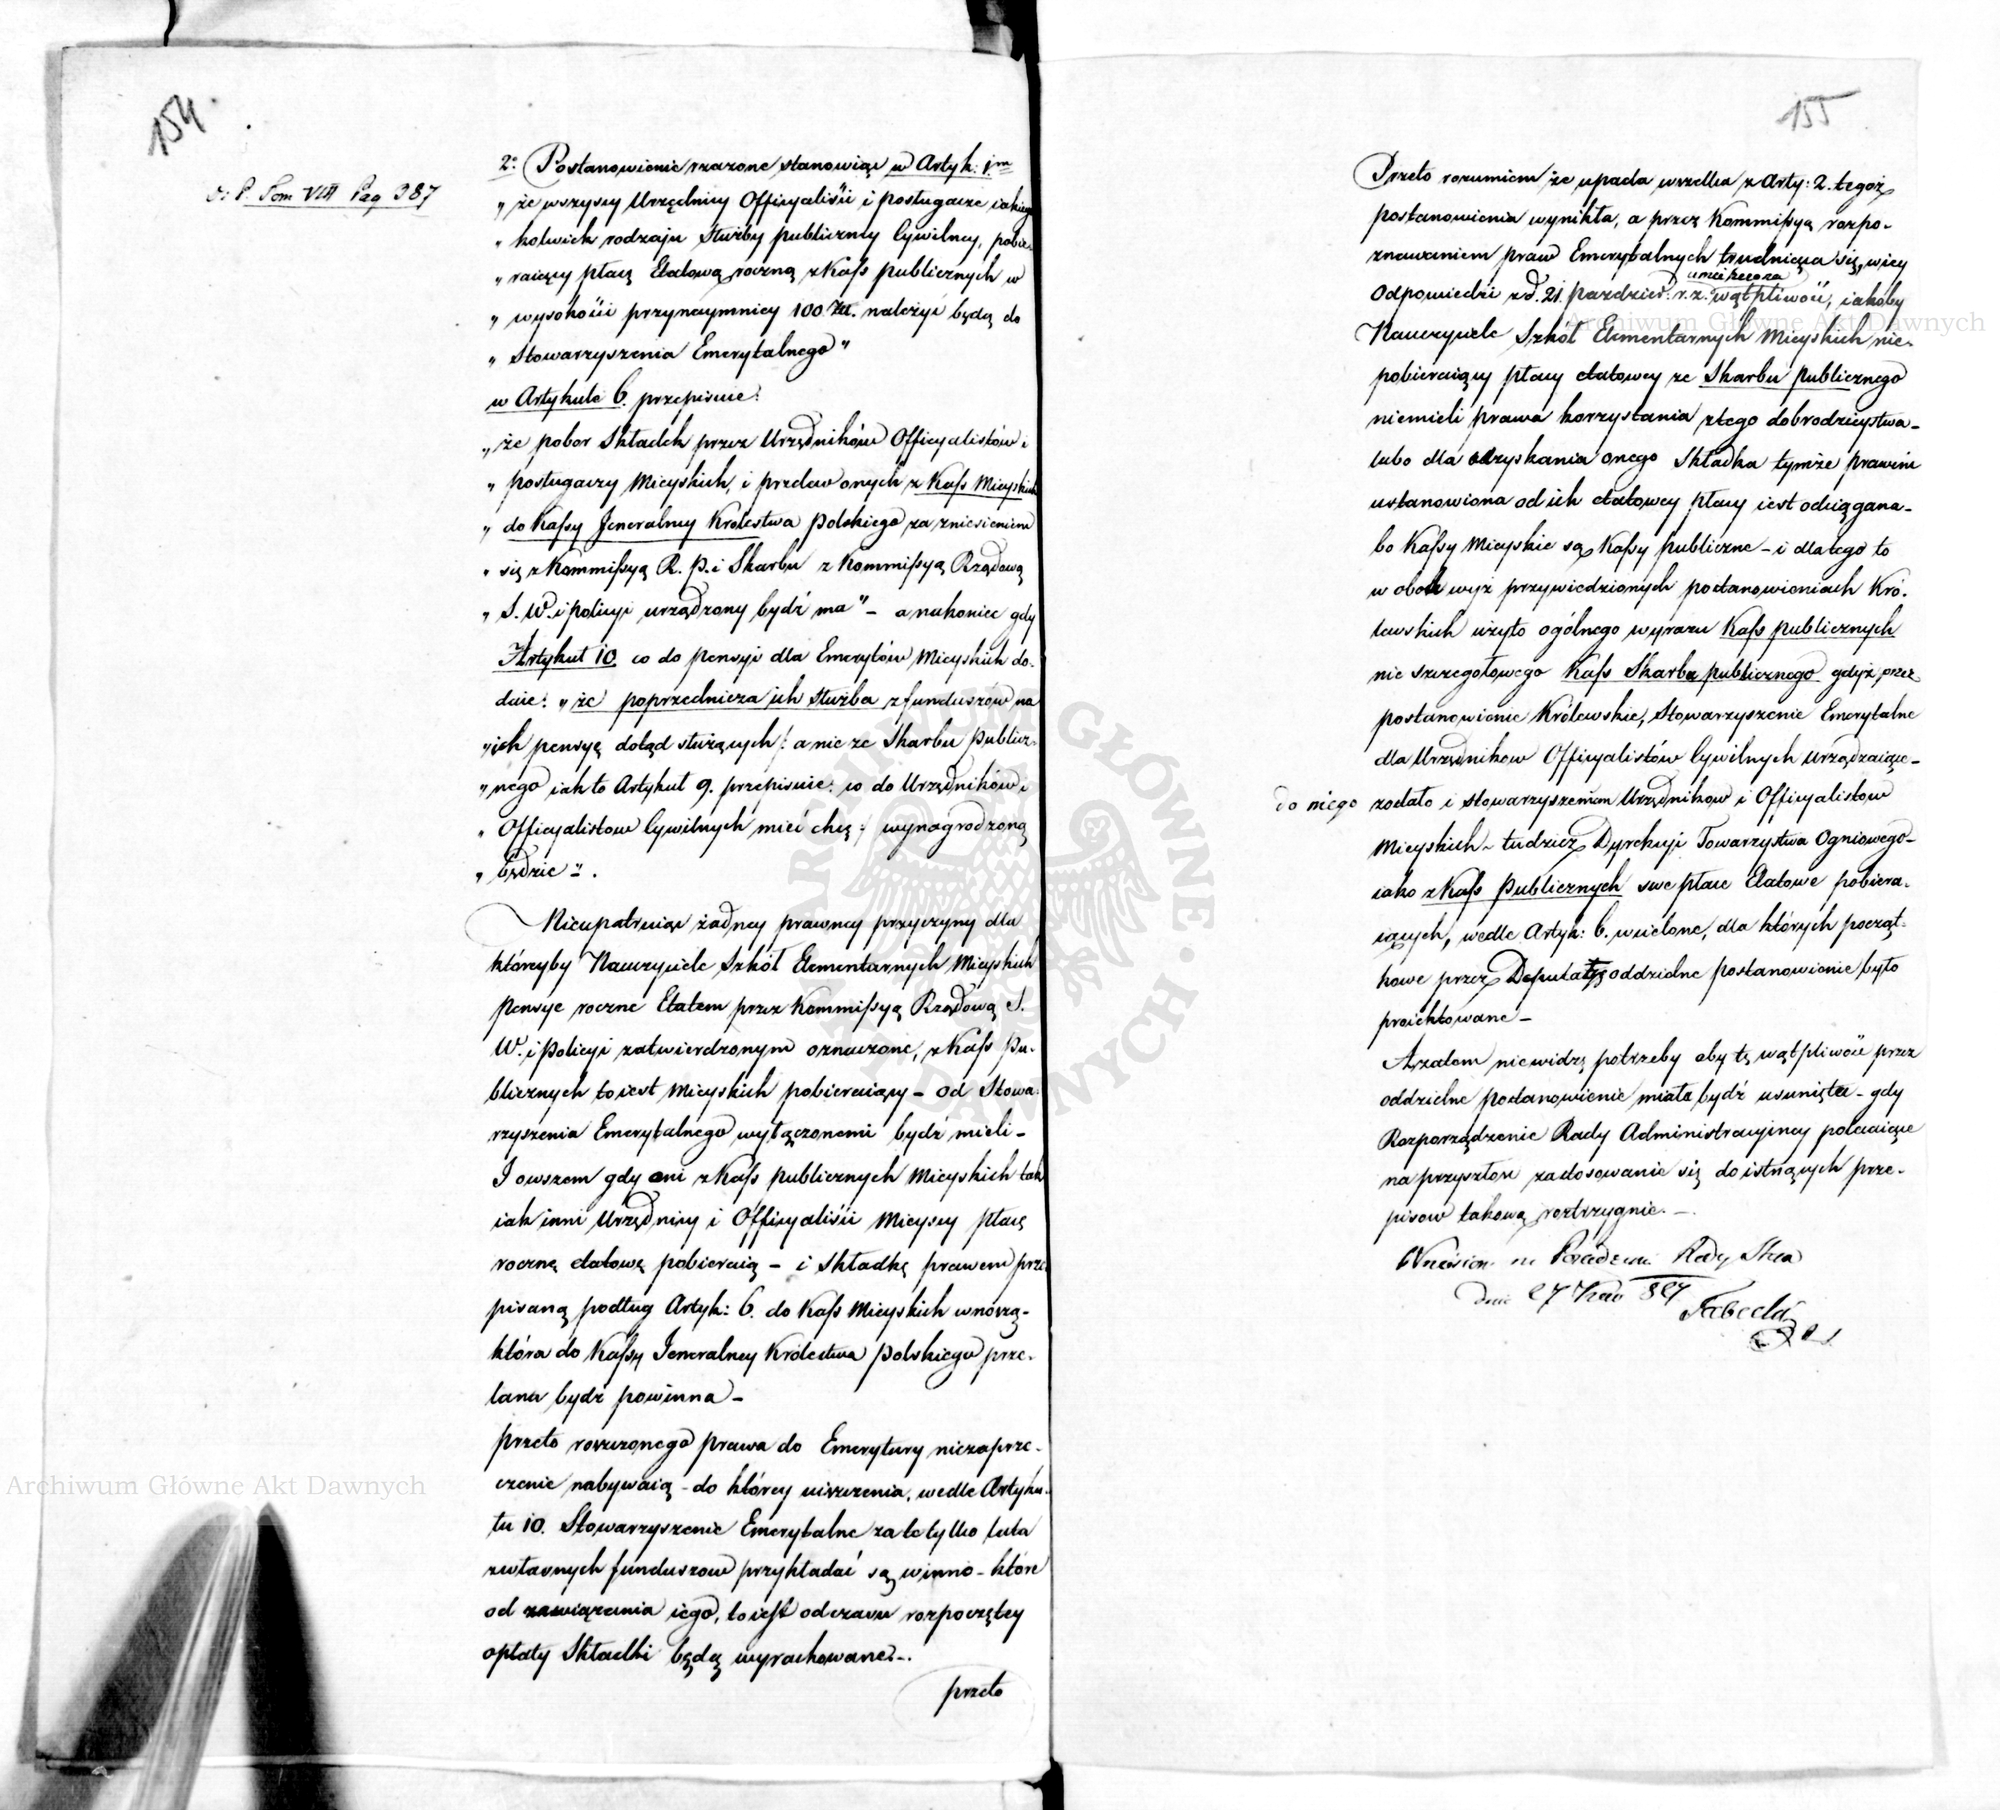 154.
D: P. Tom VIII Pag 387
2o. Postanowienie rzeczone stanowiąc w Artyk: 1m
„ że wszyscy Urzędnicy Officyaliści i posługacze iakiego
„ kolwiek rodzaju służby publiczney Cywilney, pobie-
„ raiący płacę Etatową roczną z Kass publicznych w
„ wysokości przynaymniey 100 Zł. należyć będą do
„ Stowarzyszenia Emerytalnego"
w Artykule 6. przepisuie:
„ że pobor Składek przez Urzędników Officyalistów i
„ posługaczy Mieyskich, i przelew onych z Kass Mieyskich
„ do Kassy Jeneralney Królestwa Polskiego za zniesieniem
„ się z Kommissyą R. P. i Skarbu z Kommissyą Rządową
„ S. W. i Policyi urządzony bydź ma" – a nakoniec gdy
Artykuł 10. co do pensyi dla Emerytów Mieyskich do-
daie: „ że poprzednicza ich służba z funduszów na
„ ich pensyę dotąd służących /: a nie ze Skarbu Publicz-
„ nego iak to Artykuł 9. przepisuie: co do Urzędników i
„ Officyalistow Cywilnych mieć chcą :/ wynagrodzoną
„ będzie".
Nieupatruiąc żadney prawney przyczyny dla
któreyby Nauczyciele Szkół Elementarnych Mieyskich
pensye roczne Etatem przez Kommissyą Rządową S.
W. i Policyi zatwierdzonym oznaczone, z Kass Pu-
blicznych to iest Mieyskich pobieraiący – od Stowa-
rzyszenia Emerytalnego wyłączonemi bydź mieli –
I owszem gdy oni z Kass publicznych Mieyskich tak
iak inni Urzędnicy i Officyaliści Mieyscy płacę
roczną etatową pobieraią – i składkę prawem prze
pisaną podług Artyk: 6. do Kass Mieyskich wnoszą –
która do Kassy Jeneralney Królestwa Polskiego prze-
lana bydź powinna –
przeto roszczonego prawa do Emerytury niezaprze-
czenie nabywaią – do którey uiszczenia, wedle Artyku-
łu 10. Stowarzyszenie Emerytalne za te tylko lata
z własnych funduszow przykładać się winno – które
od zawiązania iego, to iest od czasu rozpoczętey
opłaty Składki będą wyrachowane. –
przeto
155
Przeto rozumiem że upada wszelka z Arty: 2. tegoż
postanowienia wynikła, a przez Kommissyą rozpo-
znawaniem praw Emerytalnych trudniącą się, w iey
Odpowiedzi z d. 21. Pazdzier: r. z. umieszczona wątpliwość, iakoby
Nauczyciele Szkół Elementarnych Mieyskich nie-
pobieraiący płacy etatowey ze Skarbu publicznego
niemieli prawa korzystania z tego dobrodzieystwa –
lubo dla uzyskania onego Składka tymże prawem
ustanowiona od ich etatowey płacy iest odciągana –
bo Kassy Mieyskie są Kassy publiczne – i dlatego to
w obok wyż przywiedzionych postanowieniach Kró-
lewskich użyto ogólnego wyrazu Kass publicznych
nie szczegołowego Kass Skarbu publicznego gdyż przez
postanowienie Królewskie, Stowarzyszenie Emerytalne
dla Urzędnikow Officyalistów Cywilnych urządzaiące –
do niego zostało i stowarzyszeniem Urzędnikow i Officyalistow
Mieyskich – tudzież Dyrekcyi Towarzystwa Ogniowego –
iako z Kass Publicznych swe płace Etatowe pobiera-
iących, wedle Artyk: 6. wcielone, dla których począt-
kowe przez Deputacyą oddzielne postanowienie było
proiektowane –
A zatem niewidzę potrzeby aby tę wątpliwość przez
oddzielne postanowienie miała bydź usunięta – gdy
Rozporządzenie Rady Administracyiney polecaiące
na przyszłość zastosowanie się do istnących prze-
pisow takową roztrzygnie. –
dnia 27 827